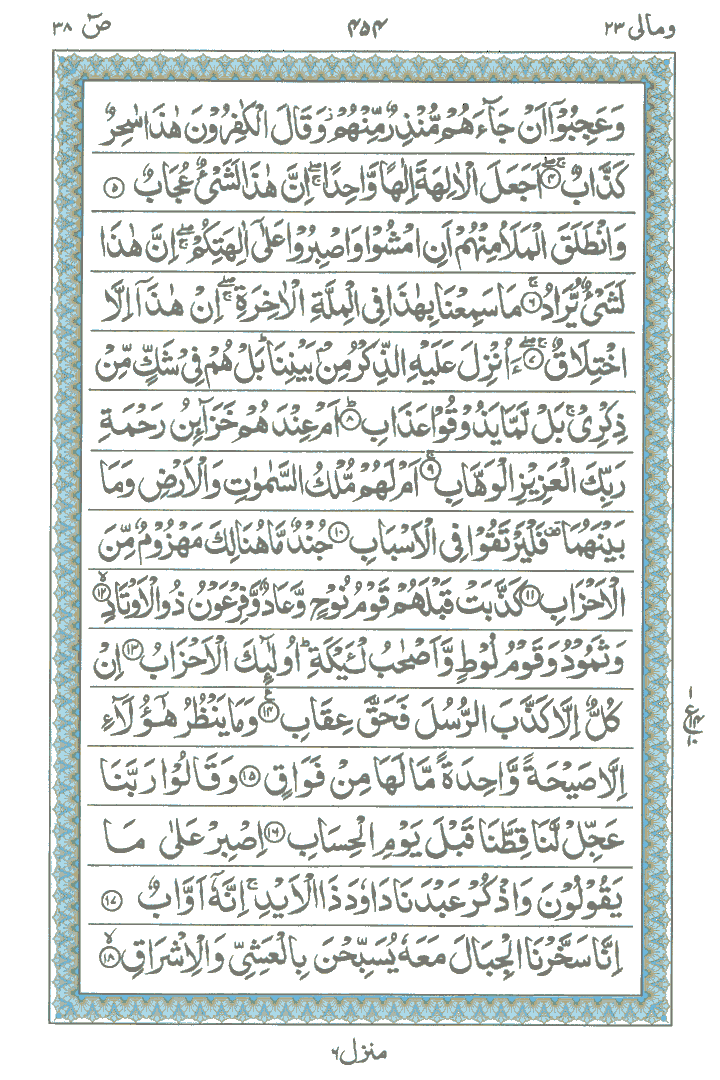 ومالی ٢٣ ۴۵۴ صٓ ٣٨
وَعَجِبُوۡۤا اَنۡ جَآءَهُمۡ مُّنۡذِرٌ مِّنۡهُمۡ‌ۚ وَقَالَ الۡكٰفِرُوۡنَ هٰذَا سٰحِرٌ
كَذَّابٌ‌ ۖ‌ۚ‏ ﴿۴﴾ اَجَعَلَ الۡاٰلِهَةَ اِلٰهًا وَّاحِدًا ‌ۖۚ اِنَّ هٰذَا لَشَىۡءٌ عُجَابٌ‏ ﴿۵﴾
وَانْطَلَقَ الۡمَلَاُ مِنۡهُمۡ اَنِ امۡشُوۡا وَاصۡبِرُوۡا عَلٰٓى اٰلِهَتِكُمۡ‌ ۖۚ‌ اِنَّ هٰذَا
لَشَىۡءٌ يُّرَادُ ‌ۚ‏ ﴿۶﴾ مَا سَمِعۡنَا بِهٰذَا فِى الۡمِلَّةِ الۡاٰخِرَةِ ‌ۖۚ اِنۡ هٰذَاۤ اِلَّا
اخۡتِلَاقٌ ‌ۖ‌ۚ‏ ﴿۷﴾ ءَاُنۡزِلَ عَلَيۡهِ الذِّكۡرُ مِنۡۢ بَيۡنِنَا‌ؕ بَلۡ هُمۡ فِىۡ شَكٍّ مِّنۡ
ذِكۡرِىۡ‌ۚ بَلْ لَّمَّا يَذُوۡقُوۡا عَذَابِؕ‏ ﴿۸﴾ اَمۡ عِنۡدَهُمۡ خَزَآٮِٕنُ رَحۡمَةِ
رَبِّكَ الۡعَزِيۡزِ الۡوَهَّابِ‌ۚ‏ ﴿۹﴾ اَمۡ لَهُمۡ مُّلۡكُ السَّمٰوٰتِ وَالۡاَرۡضِ وَمَا
بَيۡنَهُمَا‌ فَلۡيَرۡتَقُوۡا فِى الۡاَسۡبَابِ‏ ﴿۱۰﴾ جُنۡدٌ مَّا هُنَالِكَ مَهۡزُوۡمٌ مِّنَ
الۡاَحۡزَابِ‏ ﴿۱۱﴾ كَذَّبَتۡ قَبۡلَهُمۡ قَوۡمُ نُوۡحٍ وَّعَادٌ وَّفِرۡعَوۡنُ ذُو الۡاَوۡتَادِۙ‏ ﴿۱۲﴾
وَثَمُوۡدُ وَقَوۡمُ لُوۡطٍ وَّاَصۡحٰبُ لْئَيۡكَةِ‌ ؕ اُولٰٓٮِٕكَ الۡاَحۡزَابُ‏ ﴿۱۳﴾ اِنۡ
كُلٌّ اِلَّا كَذَّبَ الرُّسُلَ فَحَقَّ عِقَابِ ﴿۱۴﴾ وَمَا يَنۡظُرُ هٰٓؤُلَاۤءِ
اِلَّا صَيۡحَةً وَّاحِدَةً مَّا لَهَا مِنۡ فَوَاقٍ‏ ﴿۱۵﴾ وَقَالُوۡا رَبَّنَا
عَجِّلْ لَّنَا قِطَّنَا قَبۡلَ يَوۡمِ الۡحِسَابِ‏ ﴿۱۶﴾ اِصۡبِرۡ عَلٰى مَا
يَقُوۡلُوۡنَ وَاذۡكُرۡ عَبۡدَنَا دَاوٗدَ ذَا الۡاَيۡدِ‌ۚ اِنَّـهٗۤ اَوَّابٌ‏ ﴿۱۷﴾
اِنَّا سَخَّرۡنَا الۡجِبَالَ مَعَهٗ يُسَبِّحۡنَ بِالۡعَشِىِّ وَالۡاِشۡرَاقِۙ‏ ﴿۱۸﴾
منزل ۶